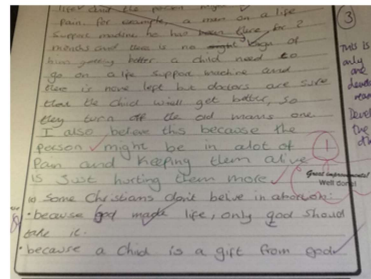 pain. for example, a man on a life
Support machine he has been there for 2
months and there is no sign of
him getting better a child need to
go on a life support machine and
there is none left but doctors are sure
that the child will get better, so
they turn off the old mans one
I also believe this because the
person might be in alot of
Pain and keeping them alive
is Just hurting them more
Great improvements!
Well done!
Some Christians don't belive in abortion:
• because god made life, only god should
take it.
• because a child is a gift from god
3
This is
only
one
1